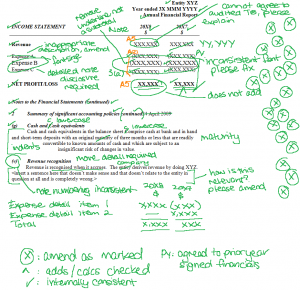 Entity XYZ
Year ended 3X MMM YYYY
Annual Financial Report
cannot agree to
audited TB, please
explain
remove
underline not
as subtotal
INCOME STATEMENT
Note
20X8
20X7
$
$
inappropriate
description, amend
Revenue
XXX,XXX
XXX,XXX
YY,YYY
Expense A
Expense B
footings
inconsistent font
please fix
detailed note
disclosure
required
NET PROFIT/LOSS
XX,XXX
XX,XXX
does not add
Notes to the Financial Statements (Continued)
Summary of significant accounting policies (continued)
lowercase
Cash and Cash equivalents
Cash and cash equivalents in the balance sheet comprise cash at bank and in hand
and short-term deposits with an original maturity of three months or less that are readily
convertible to known amounts of cash and which are subject to an
insignificant risk of changes in value.
maturity
indents
more detail required
Revenue recognition
company
Revenue is recognised when it accrues. The entity derives revenue by doing XYZ.
<Insert a sentence here that doesn't make sense and that doesn't relate to the entity in
question at all and is completely wrong.>
how is this
relevant?
please amend
note numbering inconsistent
20X8 20X7
$ $
Expense detail item 1
Expense detail item 2
Total
X : amend as marked
PY: agreed to prior year
signed financials
^ : adds/calcs checked
✓ : internally consistent